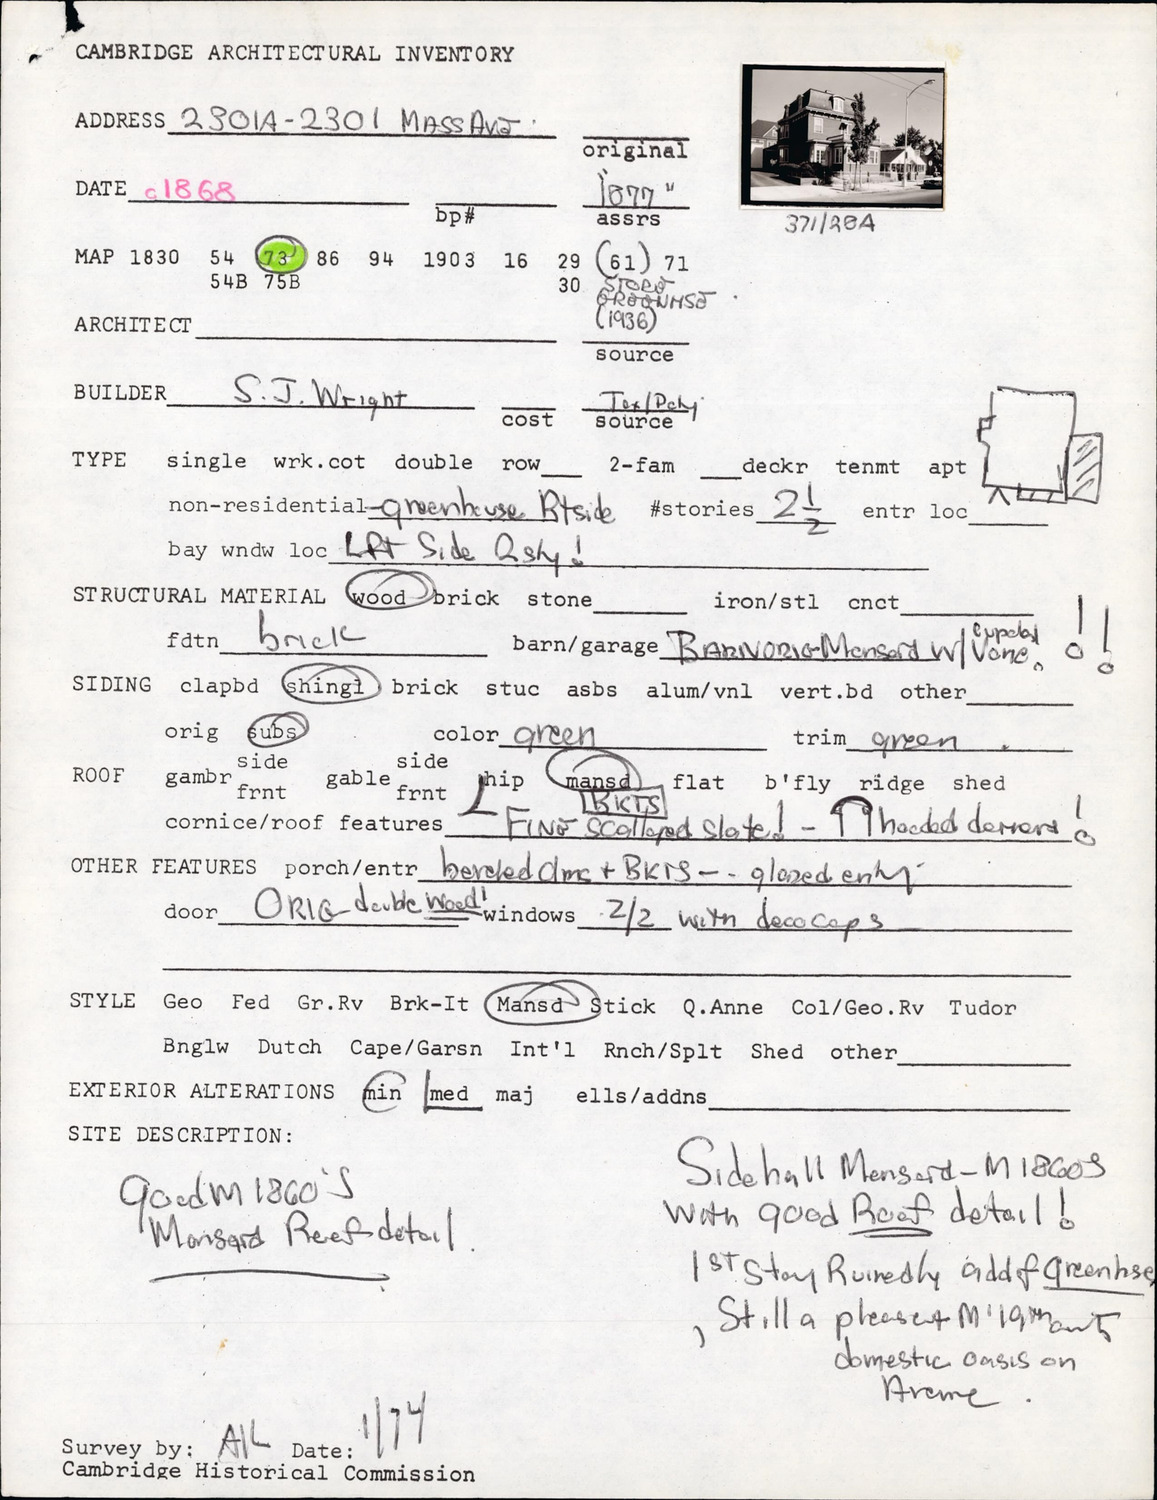 CAMBRIDGE ARCHITECTURAL INVENTORY
ADDRESS 2301A-2301 MASS AVE
original
DATE c1868 bp# "1877" assrs
371/28A
MAP 1830 54 73 86 94 1903 16 29 (61) 71
54B 75B 30 STORE
GREENHSE
(1936)
ARCHITECT
source
BUILDER S.J. Wright cost source
TYPE single wrk.cot double row 2-fam deckr tenmt apt
non-residential greenhouse Rtside #stories 2 1/2 entr loc
bay wndw loc Lft Side 2sty!
STRUCTURAL MATERIAL wood brick stone iron/stl cnct
fdtn brick barn/garage BARN ORIG Mansard w/ cupola/ Vane. !!
SIDING clapbd shingl brick stuc asbs alum/vnl vert.bd other
orig subs color green trim green
ROOF gambr side frnt gable side frnt hip mansd flat b'fly ridge shed
BKTS
cornice/roof features Fine scalloped slate! - hooded dormers!
OTHER FEATURES porch/entr beveled + BKTS - glazed entry
door ORIG double wood! windows 2/2 with deco caps
STYLE Geo Fed Gr.Rv Brk-It Mansd Stick Q.Anne Col/Geo.Rv Tudor
Bnglw Dutch Cape/Garsn Int'l Rnch/Splt Shed other
EXTERIOR ALTERATIONS min med maj ells/addns
SITE DESCRIPTION:
good M1860's
Mansard Roof detail.
Sidehall Mansard - M1860s
with good Roof detail!
1st Story Ruined by add of Greenhse
, Still a pleasant M'19th
domestic oasis on
Avenue.
Survey by: Date: 1/74
Cambridge Historical Commission